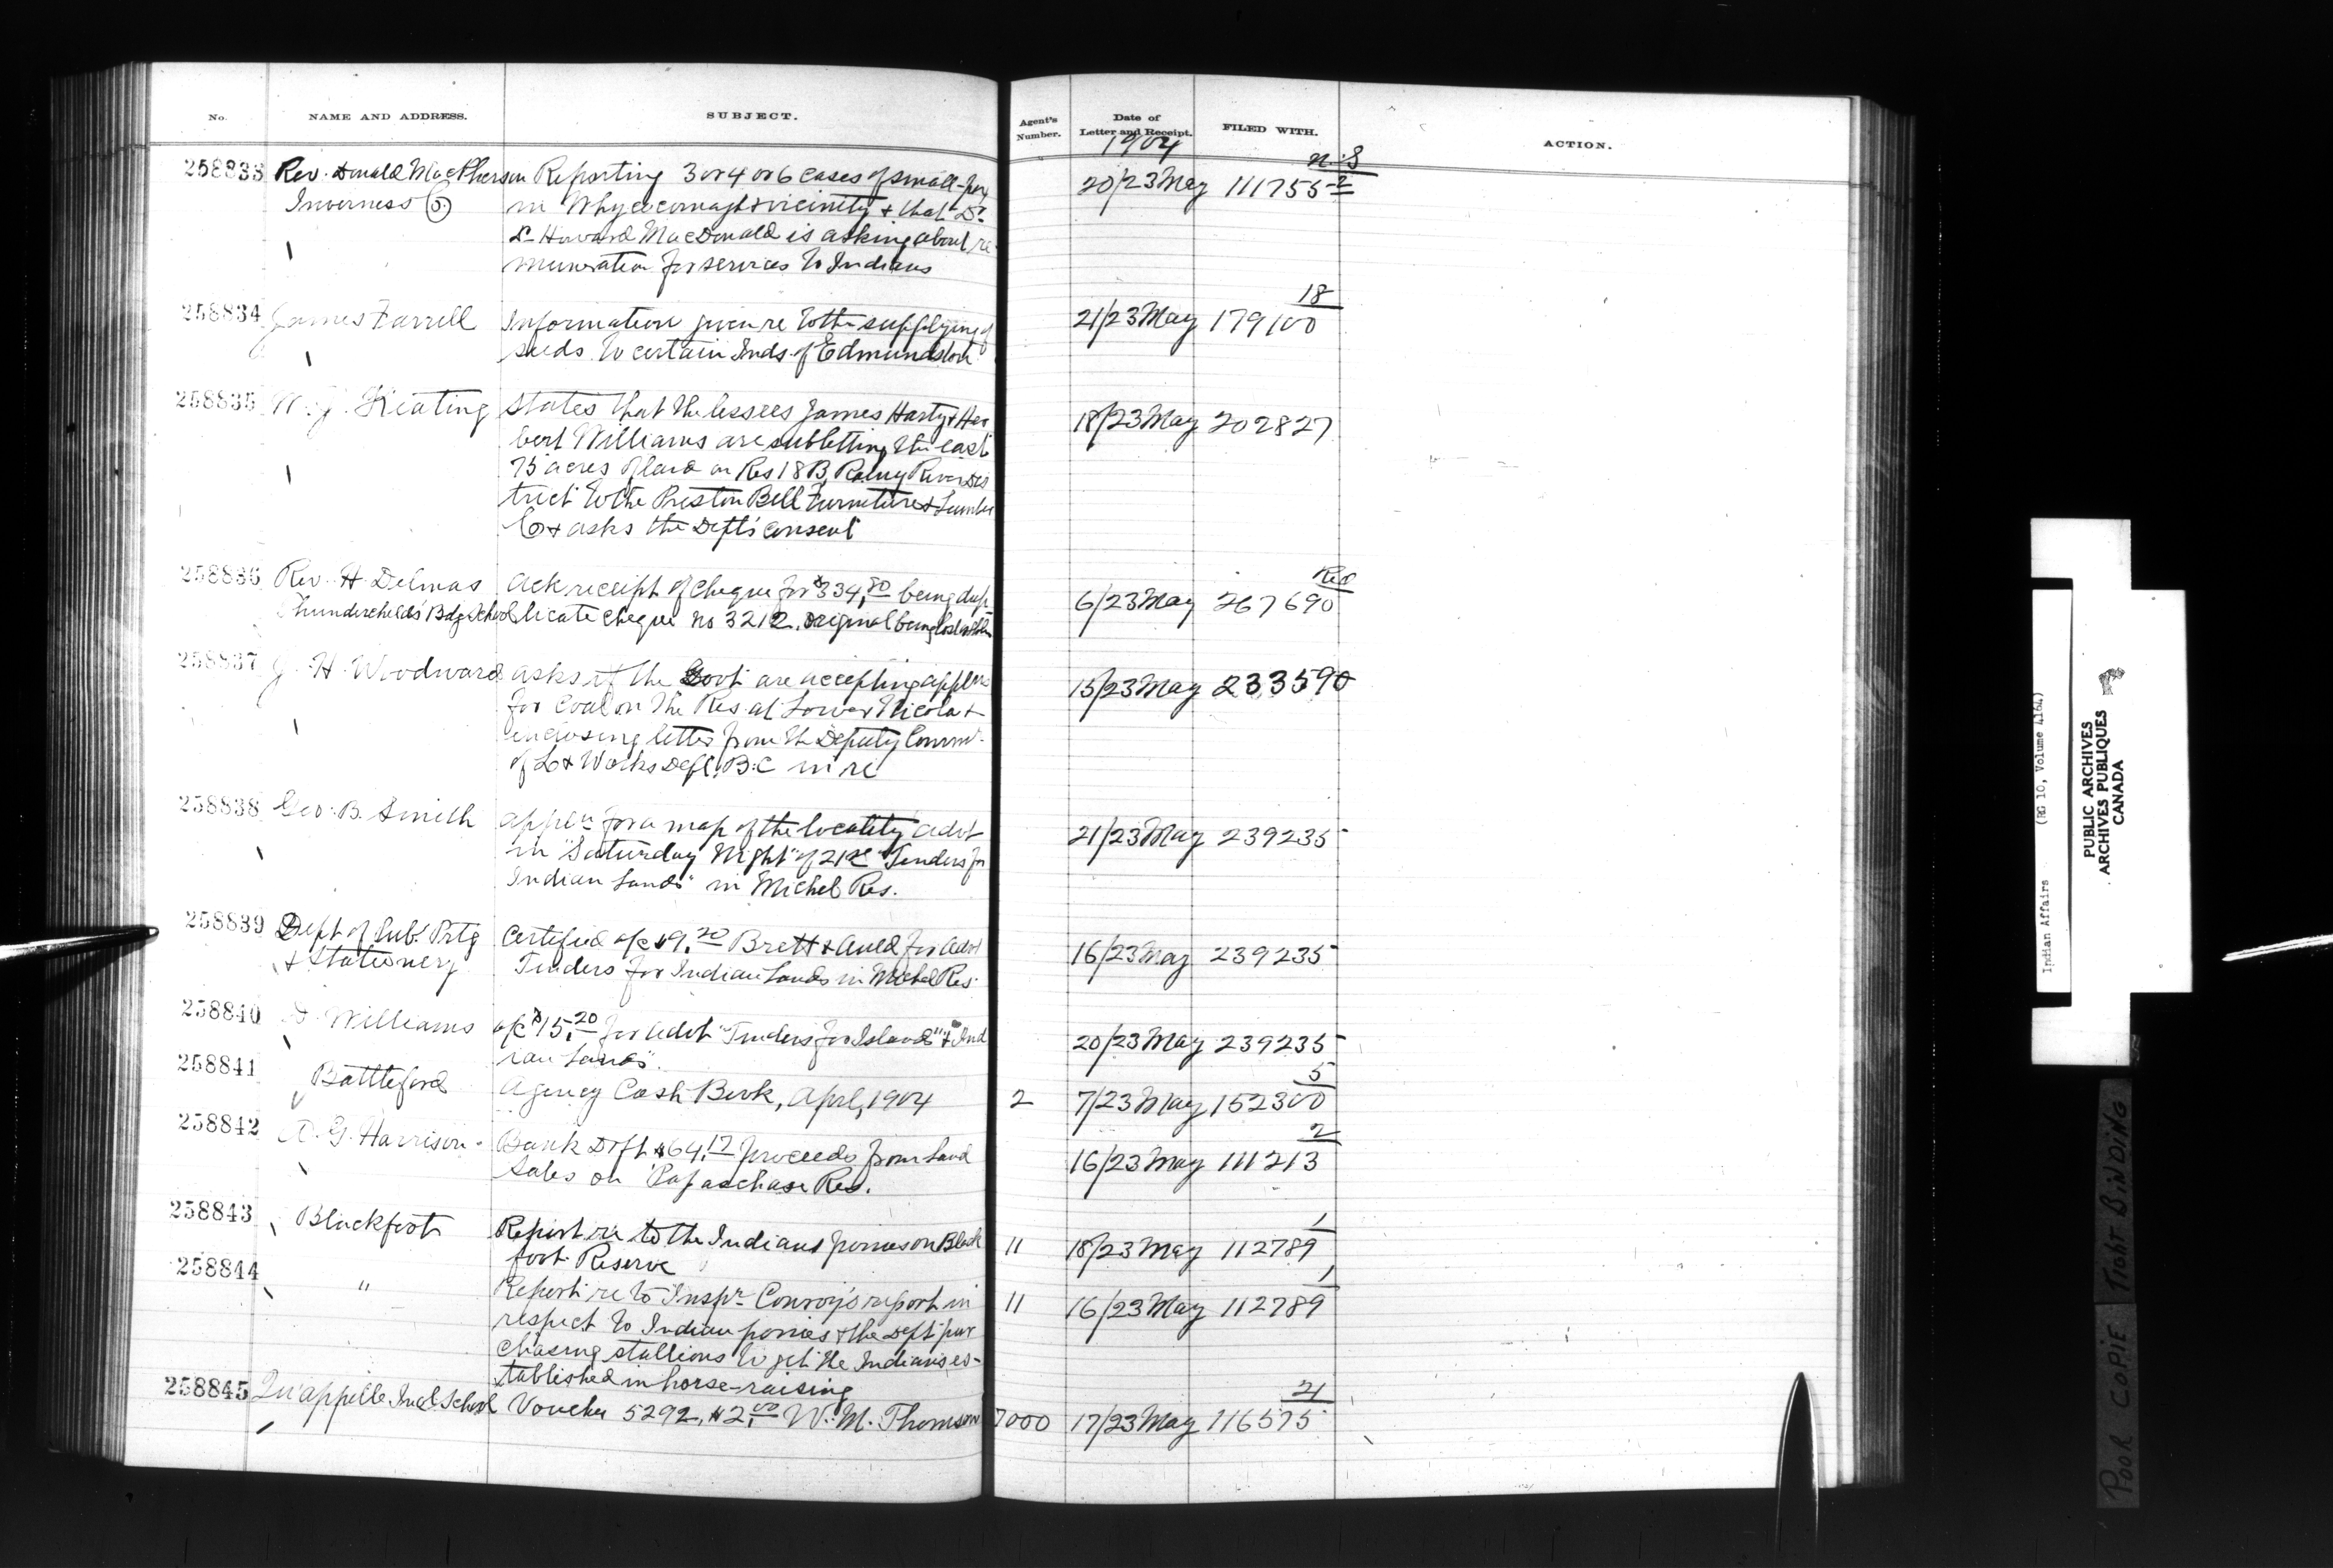 No. NAME AND ADDRESS. SUBJECT. Agent's Number. Date of Letter and Receipt. FILED WITH. ACTION.
1904
N.S
258833 Rev. Donald MacPherson Reporting 3 or 4 or 6 cases of small-pox 20/23 May 111755-2
Inverness in Whycocomagh & vicinity & that Dr.
D- Howard MacDonald is asking about re-
muneration for services to Indians
18
258834 James Farrell Information given re to the supplying of 21/23 May 179100
seeds to certain Inds. of Edmundston
258835 W. J. Keating States that the lessees James Harty & Her
bert Williams are subletting the east 18/23 May 202827
75 acres of land on Res 18B, Rainy River Dis
trict to the Preston Bell Furniture & Lumber
Co & asks the Dept's consent
258836 Rev. H. Delmas Ack receipt of cheque for $334.80 being dup- 6/23 May 267690
Thunderchild's Bdg School licate cheque no 3212, original being lost or stolen
258837 J. H. Woodward asks if the Govt are accepting appl​ns 15/23 May 233590
for coal on the Res. at Lower Nicola &
enclosing letter from the Deputy Commr.
of L & Works Dept, B.C in re
258838 Geo. B. Smith appln for a map of the locality advt 21/23 May 239235
in "Saturday Night" of 21st "Tenders for
Indian Lands" in Michel Res.
258839 Dept of Pub. Prtg Certified a/c $9.20 Brett & Auld for advt 16/23 May 239235
& Stationery Tenders for Indian Lands in Michel Res.
258840 Williams a/c $15.20 for advt "Tenders for Islands" & Ind 20/23 May 239235
ian Lands".
5
258841 Battleford Agency Cash Book, April, 1904 2 7/23 May 152300
2
258842 A. G. Harrison. Bank Dft $64.17 proceeds from land 16/23 May 111213
Sales on Papaschase Res.
1
258843 Blackfoot Report re to the Indians ponies on Black 11 18/23 May 112789
foot Reserve
1
258844 " Report re to Inspr. Conroy's report in 11 16/23 May 112789
respect to Indian ponies & the Dept pur
chasing stallions to get the Indians es-
tablished in horse-raising
21
258845 Qu'appelle Indl. School Voucher 5292, $2.00 W. M. Thomson 7000 17/23 May 116575
Indian Affairs (RG 10, Volume 4164)
PUBLIC ARCHIVES
ARCHIVES PUBLIQUES
CANADA
POOR COPIE TIGHT BINDING